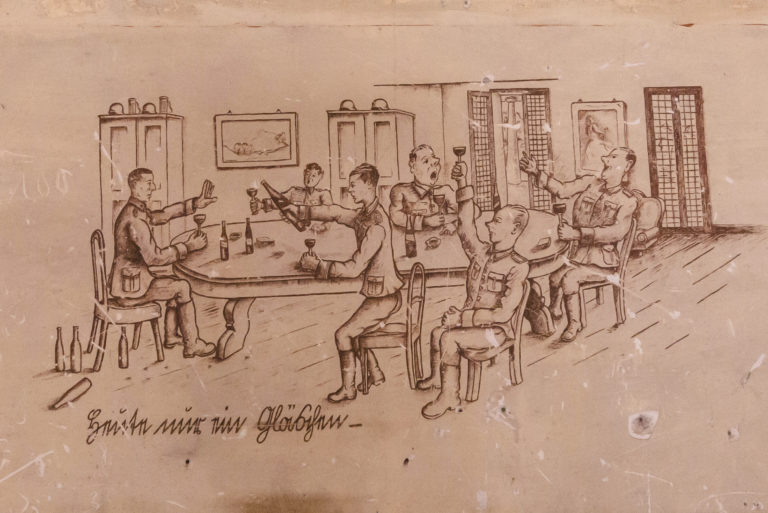 Heute nur ein Gläschen –